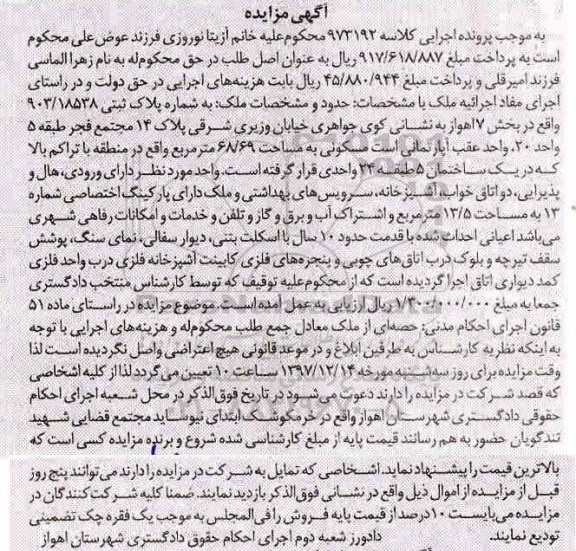 آگهی مزایده
به موجب پرونده اجرایی کلاسه ۹۷۳۱۹۲ محکوم‌علیه خانم آزیتا نوروزی فرزند عوض‌علی محکوم
است به پرداخت مبلغ ۹۱۷/۶۱۸/۸۸۷ ریال به عنوان اصل طلب در حق محکوم‌له به نام زهرا الماسی
فرزند امیرقلی و پرداخت مبلغ ۴۵/۸۸۰/۹۴۴ ریال بابت هزینه‌های اجرایی در حق دولت و در راستای
اجرای مفاد اجرائیه ملک با مشخصات: حدود و مشخصات ملک: به شماره پلاک ثبتی ۹۰۳/۱۸۵۳۸
واقع در بخش ۷ اهواز به نشانی کوی جواهری خیابان وزیری شرقی پلاک ۱۴ مجتمع فجر طبقه ۵
واحد ۲۰. واحد عقب آپارتمانی است مسکونی به مساحت ۶۸/۶۹ مترمربع واقع در منطقه با تراکم بالا
که در یک ساختمان ۵ طبقه ۲۴ واحدی قرار گرفته است. واحد مورد نظر دارای ورودی، هال و
پذیرایی، دو اتاق خواب، آشپزخانه، سرویس‌های بهداشتی و ملک دارای پارکینگ اختصاصی شماره
۱۳ به مساحت ۱۳/۵ مترمربع و اشتراک آب و برق و گاز و تلفن و خدمات و امکانات رفاهی شهری
می‌باشد اعیانی احداث شده با قدمت حدود ۱۰ سال با اسکلت بتنی، دیوار سفالی، نمای سنگ، پوشش
سقف تیرچه و بلوک درب اتاق‌های چوبی و پنجره‌های فلزی کابینت آشپزخانه فلزی درب واحد فلزی
کمد دیواری اتاق اجرا گردیده است که از محکوم‌علیه توقیف که توسط کارشناس منتخب دادگستری
جمعا به مبلغ ۱/۳۰۰/۰۰۰/۰۰۰ ریال ارزیابی به عمل آمده است. موضوع مزایده در راستای ماده ۵۱
قانون اجرای احکام مدنی: حصه‌ای از ملک معادل جمع طلب محکوم‌له و هزینه‌های اجرایی با توجه
به اینکه نظریه کارشناس به طرفین ابلاغ و در موعد قانونی هیچ اعتراضی واصل نگردیده است لذا
وقت مزایده برای روز سه‌شنبه مورخه ۱۳۹۷/۱۲/۱۴ ساعت ۱۰ تعیین می‌گردد لذا از کلیه اشخاصی
که قصد شرکت در مزایده را دارند دعوت می‌شود در تاریخ فوق‌الذکر در محل شعبه اجرای احکام
حقوقی دادگستری شهرستان اهواز واقع در خرمکوشک ابتدای نیوساید مجتمع قضایی شهید
تندگویان حضور به هم رسانند قیمت پایه از مبلغ کارشناسی شده شروع و برنده مزایده کسی است که
بالاترین قیمت را پیشنهاد نماید. اشخاصی که تمایل به شرکت در مزایده را دارند می‌توانند پنج روز
قبل از مزایده از اموال ذیل واقع در نشانی فوق‌الذکر بازدید نمایند. ضمنا کلیه شرکت‌کنندگان در
مزایده می‌بایست ۱۰ درصد از قیمت پایه فروش را فی‌المجلس به موجب یک فقره چک تضمینی
تودیع نمایند.
دادورز شعبه دوم اجرای احکام حقوق دادگستری شهرستان اهواز